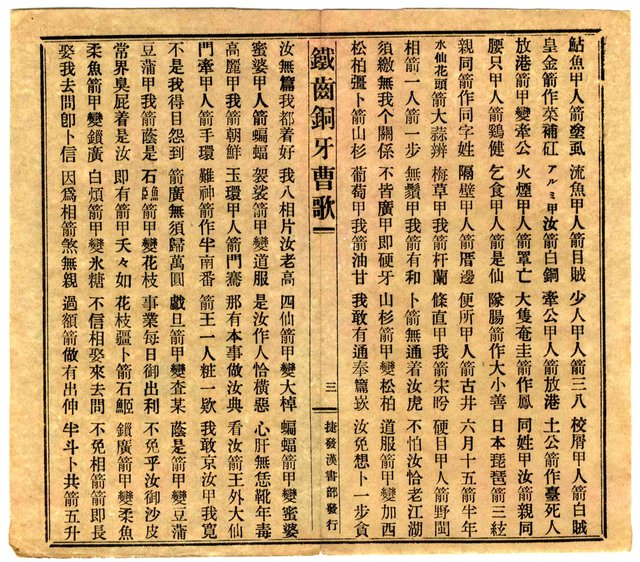 鮎魚甲人箭塗虱 流魚甲人箭目賊 少人甲人箭三八 校屑甲人箭白賊
皇金箭作菜補矼 アルミ甲汝箭白銅 牽公甲人箭放港 土公箭作臺死人
放港箭甲變牽公 火煙甲人箭罩亡 大隻奄圭箭作鳳 同姓甲汝箭親同
腰只甲人箭鷄健 乞食甲人箭是仙 隊腸箭作大小善 日本琵琶箭三絃
親同箭作同字姓 隔壁甲人箭厝邊 便所甲人箭古井 六月十五箭半年
水仙花頭箭大蒜辨 梅草甲我箭杆蘭 條直甲我箭宋盻 硬日甲人箭野閩
相箭一人箭一步 無鬚甲我箭有和 卜箭無通着汝虎 不怕汝恰老江湖
須緻無我个關係 不皆廣甲即硬牙 山杉箭甲變松柏 道服箭甲變加西
松柏彊卜箭山杉 葡萄甲我箭油甘 我敢有通奉籠嵌 汝免想卜一步貪
鐵齒銅牙曹歌 三 捷發漢書部發行
汝無篙我都着好 我八相片汝老高 四仙箭甲變大棹 蝙蝠箭甲變蜜婆
蜜婆甲人箭蝙蝠 袈裟箭甲變道服 是汝作人恰橫惡 心肝無恁靴年毒
高麗甲我箭朝鮮 玉環甲人箭門騫 那有本事做汝典 看汝箭王外大仙
門牽甲人箭手環 難神箭作半南番 箭王一人粧一欵 我敢京汝甲我寬
不是我得目怨到 箭廣無須歸萬圓 戲旦箭甲變查某 蔭是箭甲變豆蒲
豆蒲甲我箭蔭是 石箭甲變花枝 事業每日御出利 不免乎汝御沙皮
常界臭屁着是汝 即有箭甲夭々如 花枝疆卜箭石鮔 鎖廣箭甲變柔魚
柔魚箭甲變鎖廣 白煩箭甲變氷糖 不信相娶來去問 不免相箭箭即長
娶我去問卽卜信 因爲相箭煞無親 過額箭做有出伸 半斗卜共箭五升